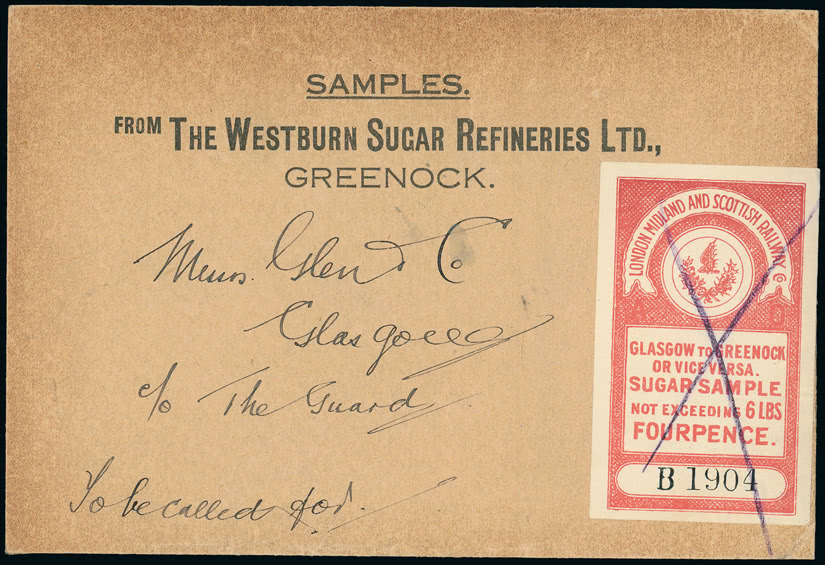 SAMPLES.
FROM THE WESTBURN SUGAR REFINERIES LTD.,
GREENOCK.
Messrs. Glen & Co
Glasgow
c/o The Guard
To be called for.
LONDON MIDLAND AND SCOTTISH RAILWAY Co
GLASGOW TO GREENOCK
OR VICE VERSA.
SUGAR SAMPLE
NOT EXCEEDING 6 LBS
FOURPENCE.
B 1904